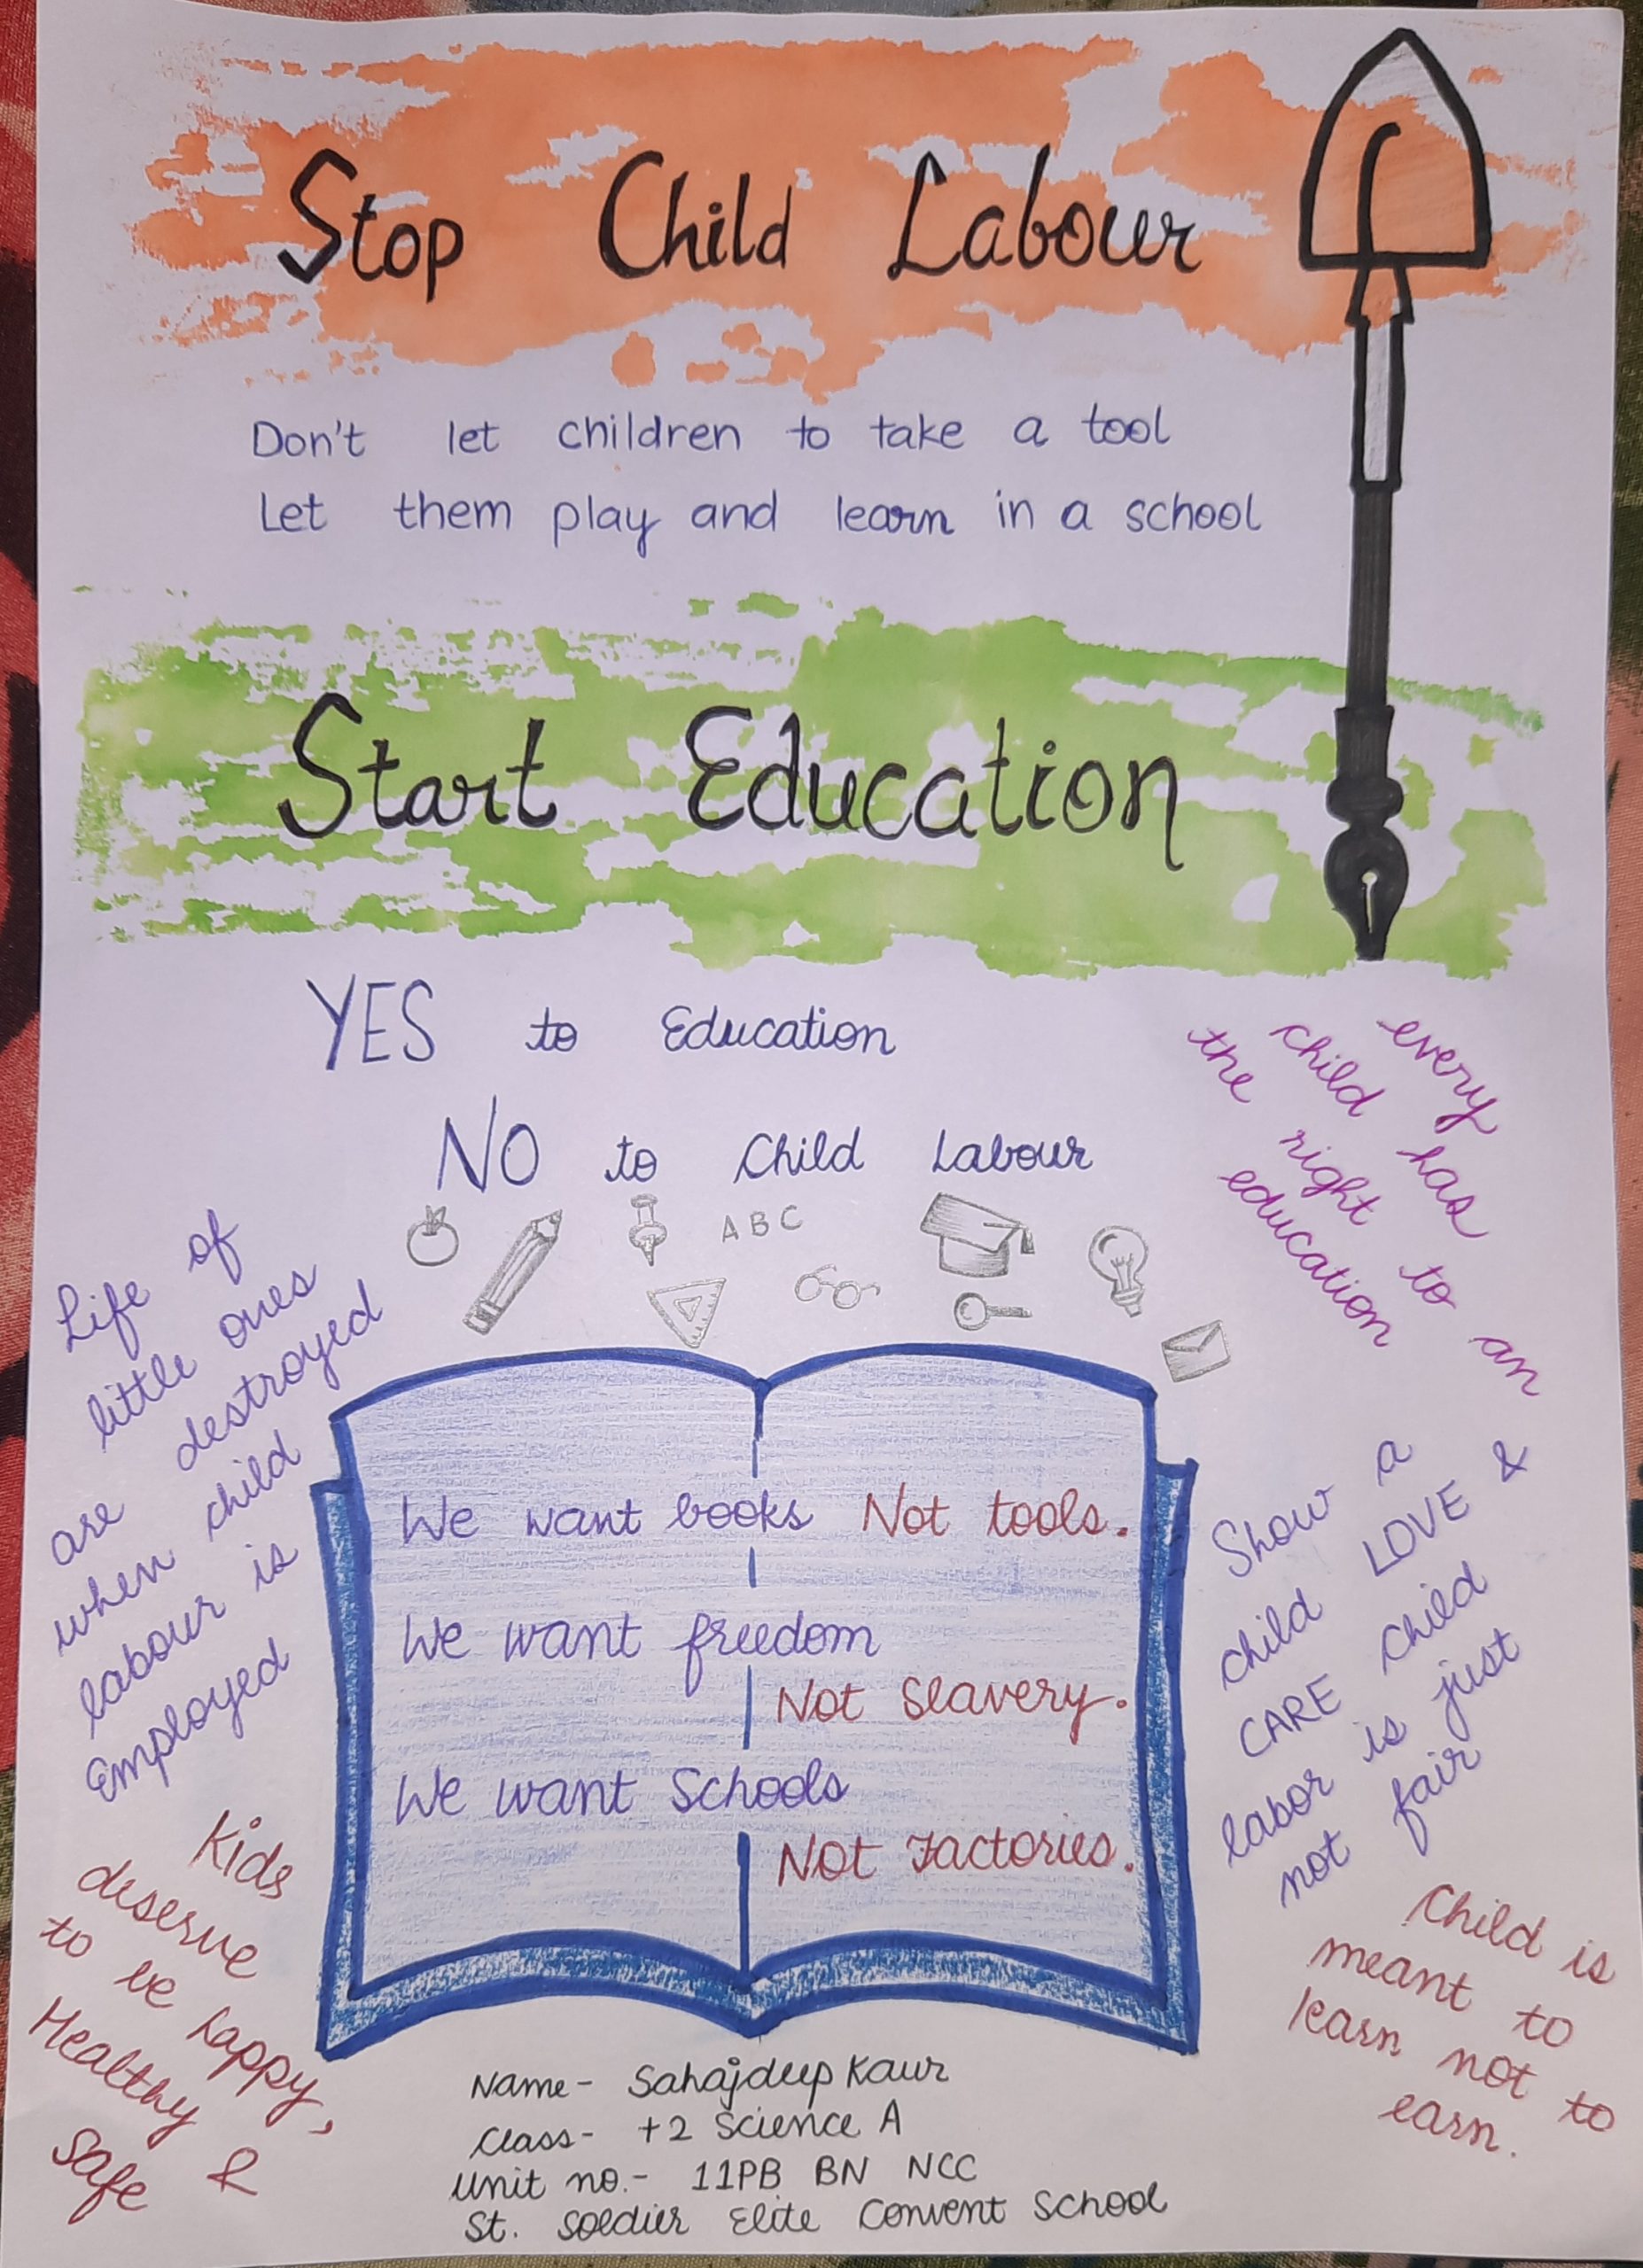 Stop Child Labour
Don't let children to take a tool
Let them play and learn in a school
Start Education
YES to Education
NO to Child Labour
A B C
every
child has
the right to an
education
Life of
little ones
are destroyed
when child
labour is
Employed
We want books Not tools.
We want freedom
Not Slavery.
We want Schools
Not Factories.
Show a
child LOVE &
CARE Child
labor is just
not fair
Kids
deserve
to be happy,
Healthy &
Safe
Child is
meant to
learn not to
earn.
Name- Sahajdeep Kaur
Class- +2 Science A
Unit no.- 11PB BN NCC
St. Soldier Elite Convent School